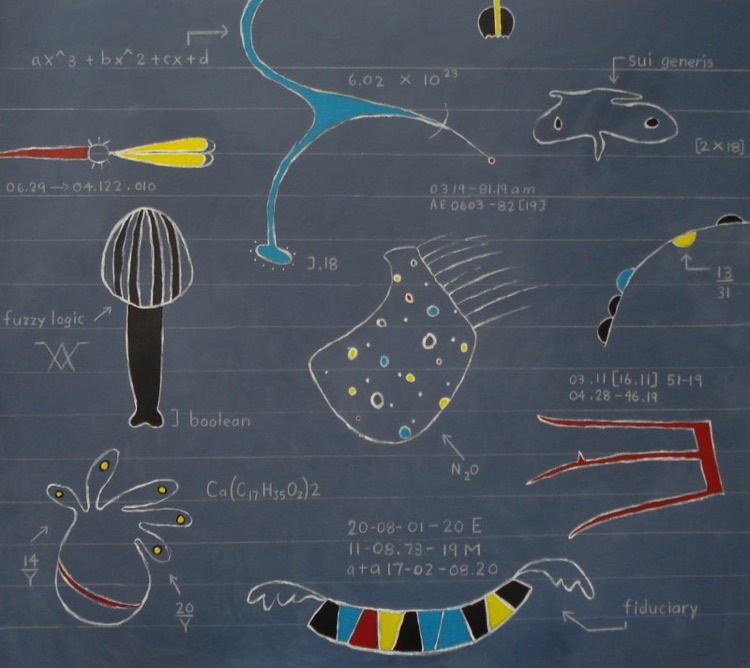 ax^3 + bx^2 + cx + d
6.02 × 10²³
sui generis
[2×18]
06.29 → 04.122.010
0319-81.19am
AE 0603-82[19]
J.18
13
31
fuzzy logic
] boolean
03.11 [16.11] 51-19
04.28-46.19
N₂O
Ca(C₁₇H₃₅O₂)2
14
Y
20
Y
20-08-01-20 E
11-08.73-19 M
a+a 17-02-08.20
fiduciary